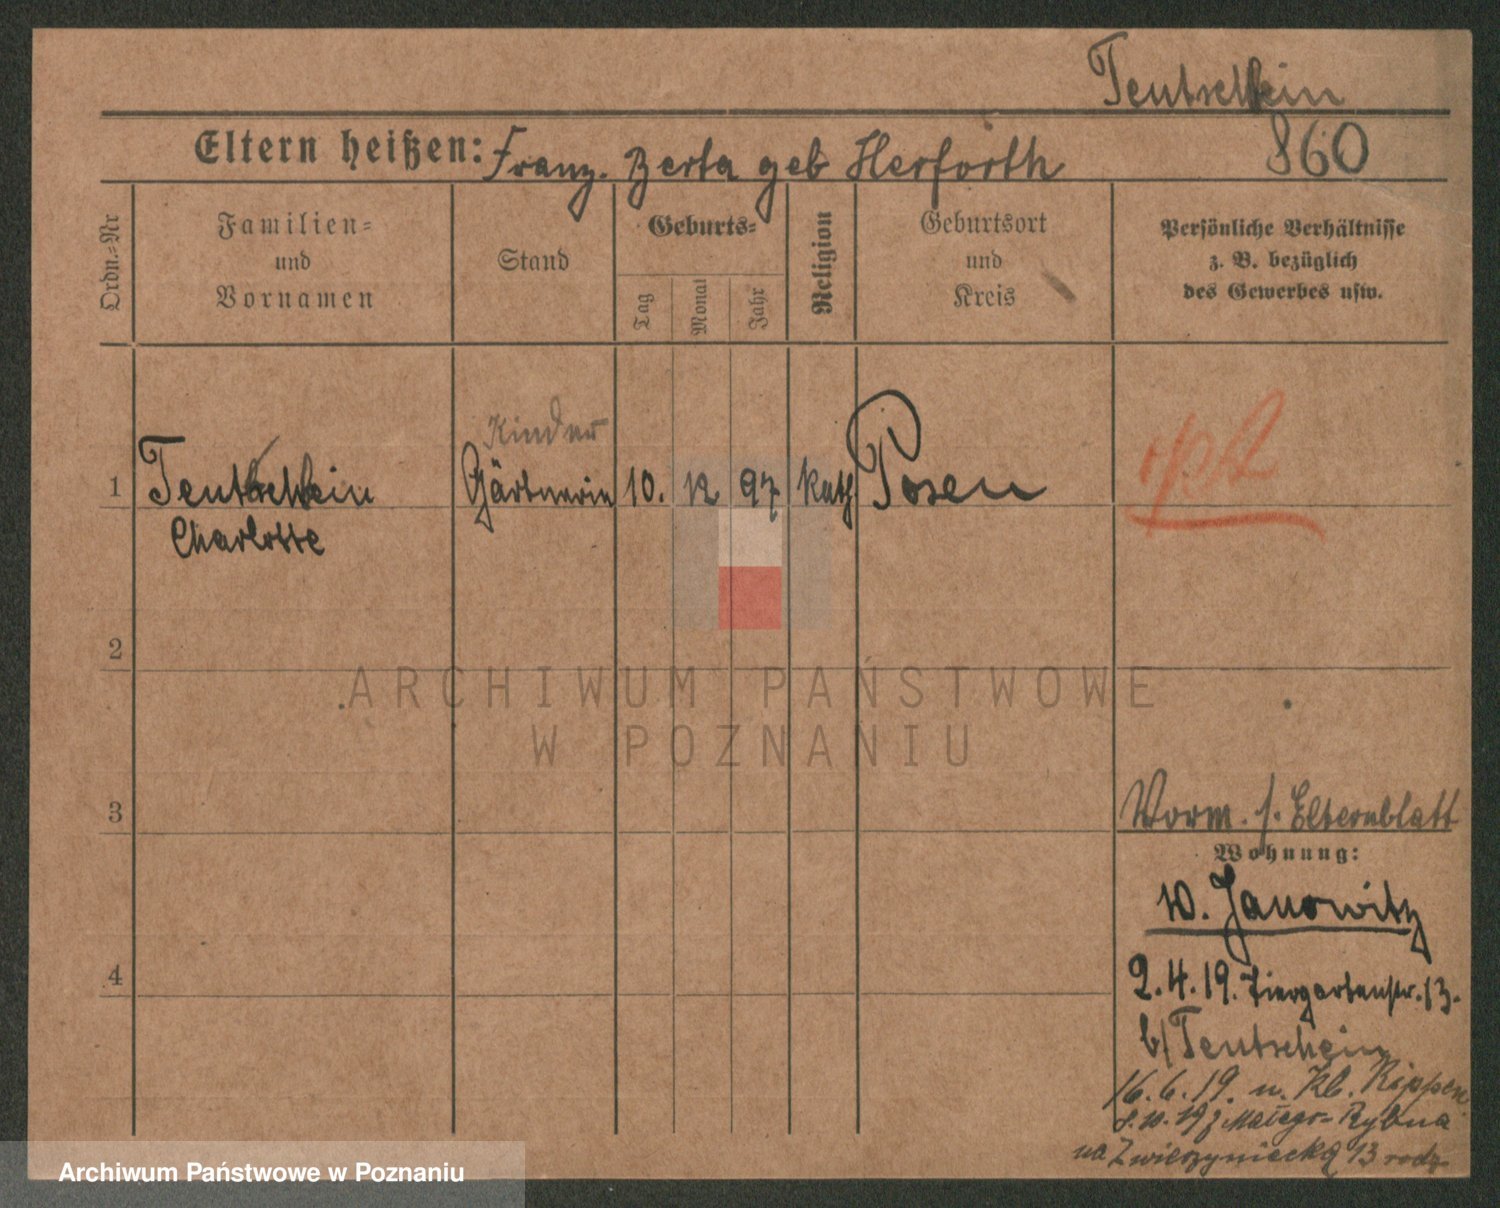 Teutschbein
860
Eltern heißen: Franz. Berta geb Herforth
Ordn.=Nr
Familien=
und
Vornamen
Stand
Geburts=
Tag
Monat
Jahr
Religion
Geburtsort
und
Kreis
Persönliche Verhältnisse
z. B. bezüglich
des Gewerbes usw.
Kinder
1 Teutschbein Gärtnerin 10. 12 97 kath Posen
Charlotte
2
ARCHIWUM PAŃSTWOWE
W POZNANIU
3
Vorm. s. Elternblatt
Wohnung:
4
w. Janowitz
2.4.19. Tiergartenstr. 13.
b/ Teutschbein
16.6.19. n. Kl. Rippen
Małego-Rybna
na Zwierzyniecką 13
Archiwum Państwowe w Poznaniu